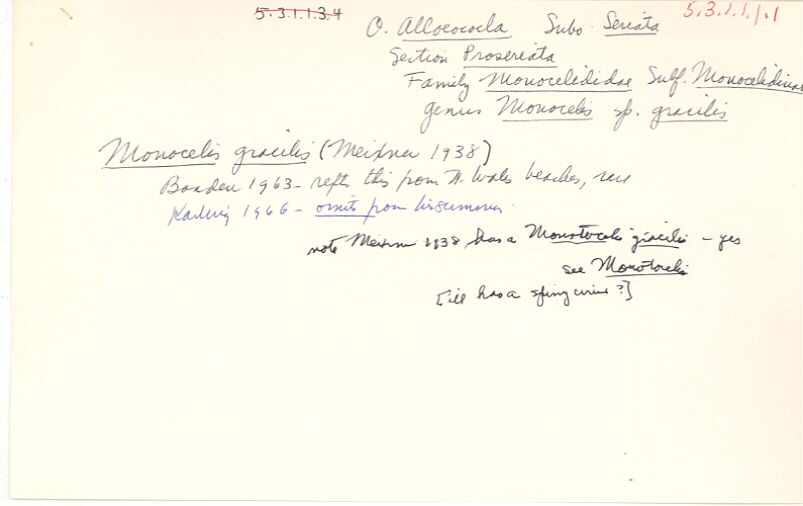 5.3.1.1.3.4
5.3.1.1.1.1
O. Alloeocoela Subo. Seriata
Section Proseriata
Family Monocelididae Subf. Monocelidinae
genus Monocelis sp. gracilis
Monocelis gracilis (Meixner 1938)
Boaden 1963 - repts this from N. Wales beaches, rare
Karling 1966 - omits from his summary
note Meixner 1938 has a Monotocelis gracilis - yes
see Monotocelis
[ill has a spiny cirrus?]